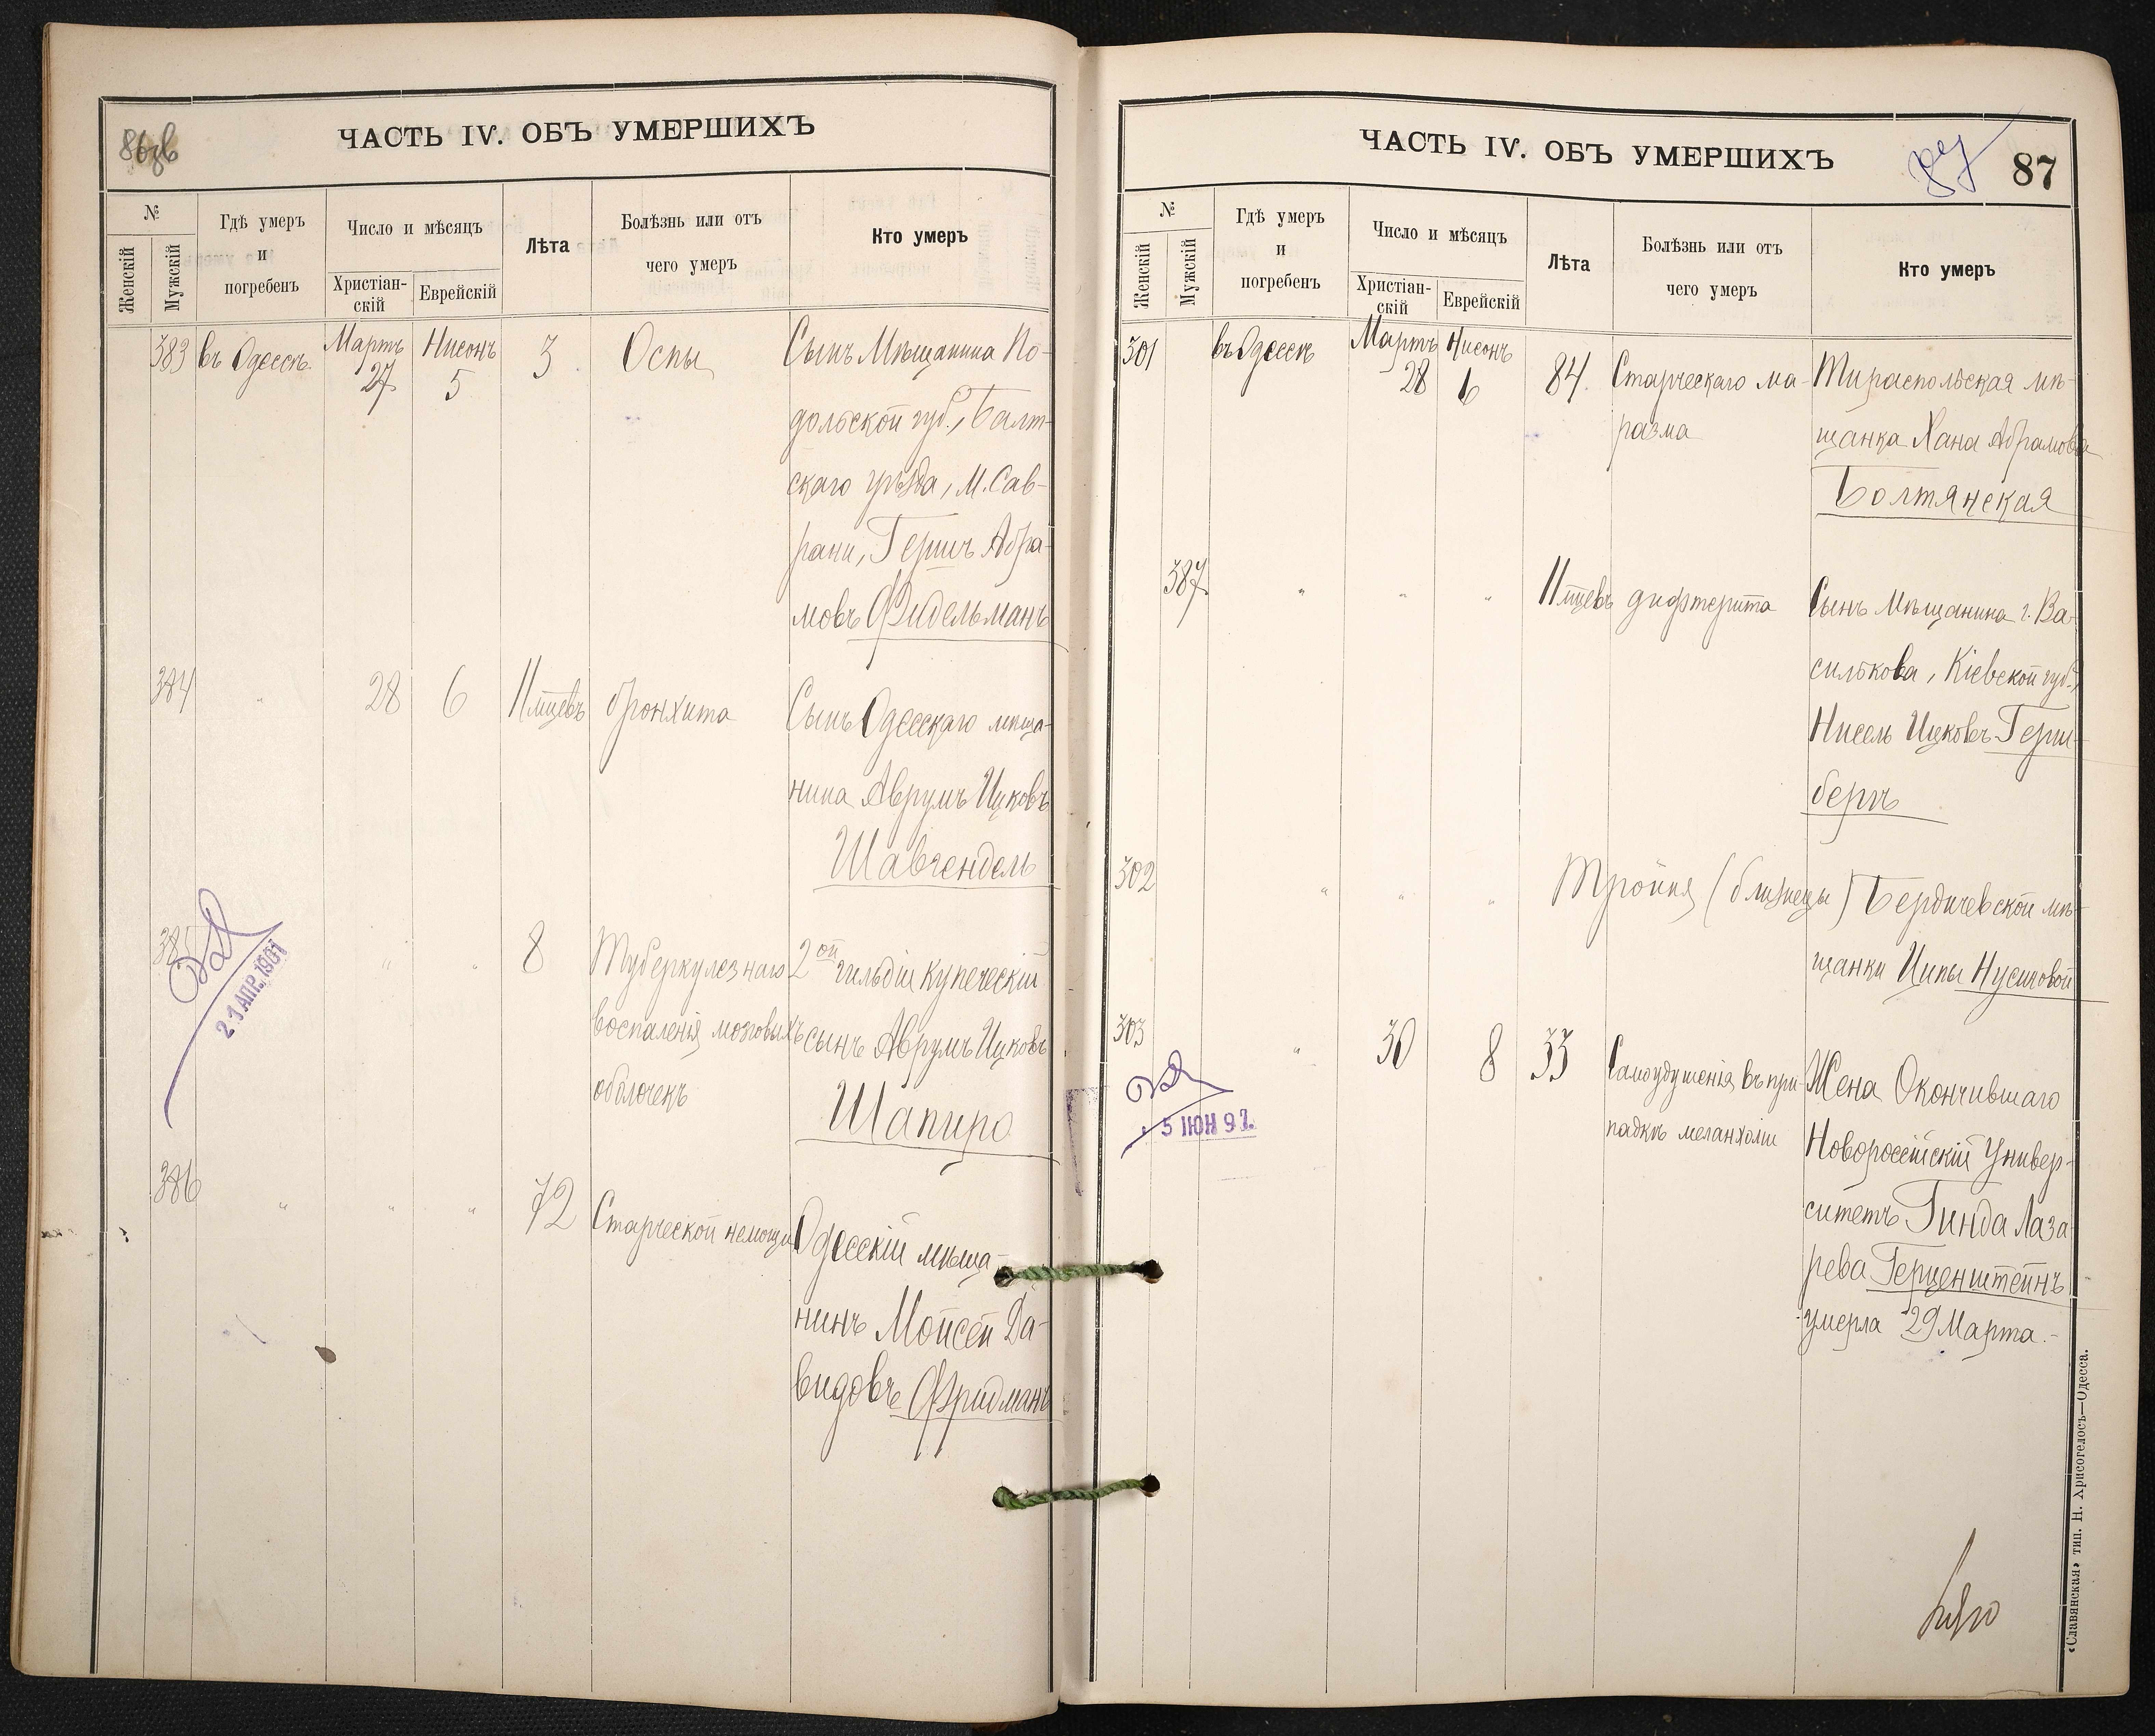 86зв
ЧАСТЬ IV. ОБЪ УМЕРШИХЪ
№
Женскій
Мужскій
Гдѣ умеръ
и
погребенъ
Число и мѣсяцъ
Христіан-
скій
Еврейскій
Лѣта
Болѣзнь или отъ
чего умеръ
Кто умеръ
383 въ Одессѣ. Мартъ 27 Нисонъ 5 3 Оспы Сынъ Мѣщанина По-
дольской губ., Балт-
скаго уѣзда, М. Сав-
рани, Гершъ Абра-
мовъ Фидельманъ
384 " 28 6 11 мцевъ бронхита Сынъ Одесскаго мѣща-
нина Аврумъ Ицковъ
Шавгендель
385 " " 8 Туберкулезнаго 2ой гильдіи купеческій
воспаленія мозговыхъ сынъ Аврумъ Ицковъ
оболочекъ Шапиро
21 АПР. 1901
386 " " " 72 Старческой немощи Одесскій мѣща-
нинъ Мойсей Да-
видовъ Фридманъ
ЧАСТЬ IV. ОБЪ УМЕРШИХЪ
87
87
№
Женскій
Мужскій
Гдѣ умеръ
и
погребенъ
Число и мѣсяцъ
Христіан-
скій
Еврейскій
Лѣта
Болѣзнь или отъ
чего умеръ
Кто умеръ
301 въ Одессѣ Мартъ 28 Нисонъ 6 84. Старческаго ма- Тираспольская мѣ-
разма щанка Хана Абрамова
Болтянская
387 " " " 11 мцевъ дифтерита Сынъ Мѣщанина г. Ва-
силькова, Кіевской губ.,
Нисель Ицковъ Герш-
бергъ
302 " " " Тройня (близнецы) Бердичевской мѣ-
щанки Ципы Нусиновой
303 " 30 8 33 Самоудушенія въ при- Жена Окончившаго
падкѣ меланхоліи Новороссійскій Универ-
ситетъ Гинда Лаза
рева Герценштейнъ
умерла 29 Марта.-
5 ІЮН 97.
«Славянская» тип. Н. Хрисогелосъ—Одесса.